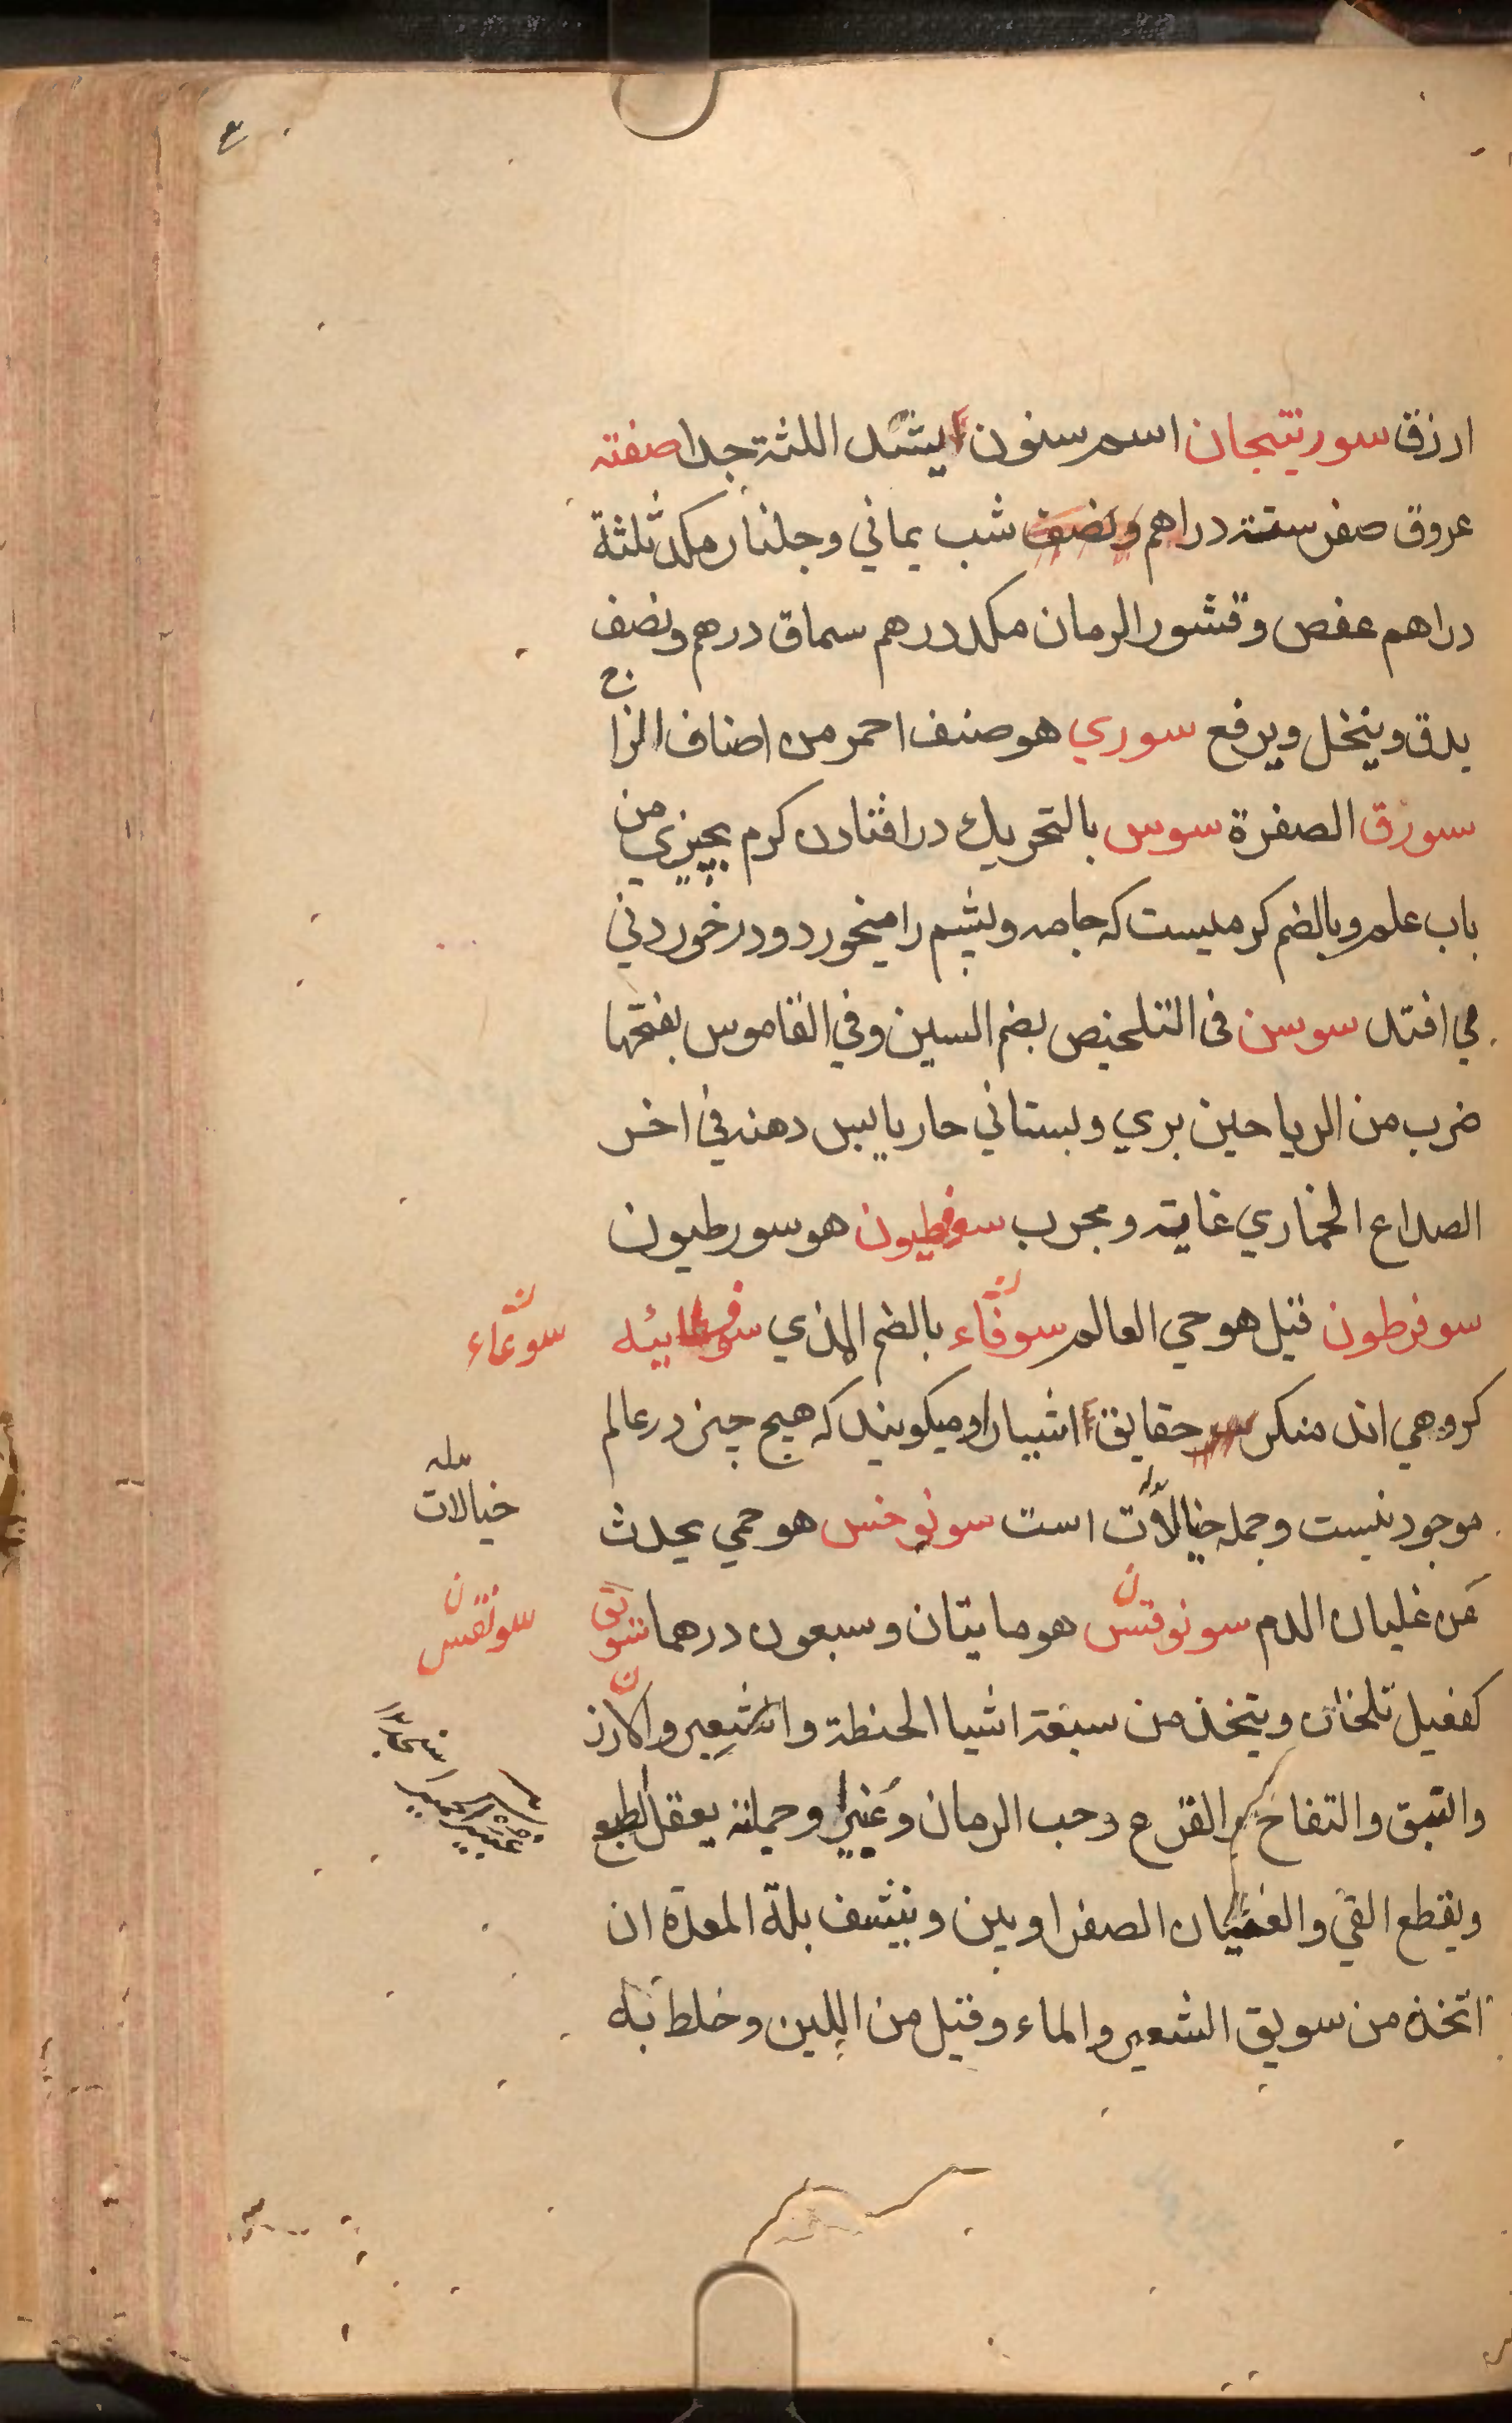 ارزق سورنتيجان اسم سنون يشد اللثة جدا صفته
عروق صفر ستة دراهم ونصف شب يماني وجلنار مكد ثلثة
دراهم عفص وقشور الرمان مكد درهم سماق درهم ونصف
يدق وينخل ويرفع سوري هو صنف احمر من اصناف الزاج
سورق الصفرة سوس بالتحريك در افتادن كرم بچيزي من
باب علم وبالضم كرميست كه جامه وپشم را ميخورد ودر خوردني
مي افتد سوسن في التلخيص بضم السين وفي القاموس بفتحها
ضرب من الرياحين بري وبستاني حار يابس دهنه في اخر
الصداع الخماري غاية ومجرب سفرطيون هو سورطيون
سوفرطون قيل هو حي العالم سوفاء بالضم الذي سوفسطائيه
كروهي اند منكر حقايق اشيا را وميكويند كه هيچ چيز در عالم
موجود نيست وجمله خيالات است سونوخس هو حمي يحدث
من غليان الدم سونوقس هو مايتان وسبعون درهما سويق
كفعيل تلخان ويتخذ من سبعة اشيا الحنطة والشعير والارز
والنبق والتفاح والقرع وحب الرمان وغير وجملته يعقل الطبع
ويقطع القي والغثيان الصفراويين وينشف بلة المعدة ان
اتخذ من سويق الشعير والماء وقيل من اللبن وخلط به
سوعاء
بدله
خيالات
سونقس